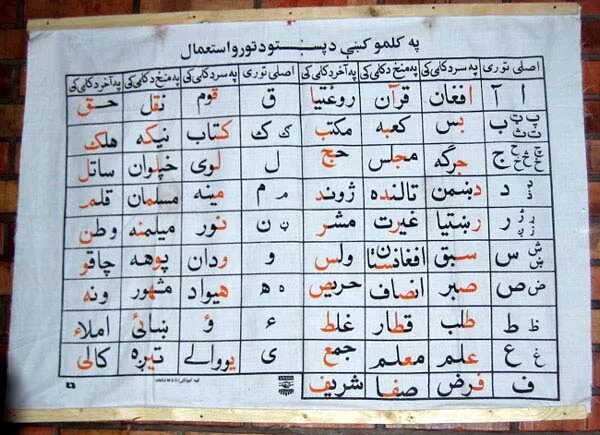 په کلمو کښې د پښتو د تورو استعمال
اصلی توری په سر د کلمې کې په منځ د کلمې کې په آخر د کلمې کې اصلی توری په سر د کلمې کې په منځ د کلمې کې په آخر د کلمې کې
ا آ افغان قرآن روغتیا ق قوم نقل حق
ب پ ت ټ ث بس کعبه مکتب ک ګ کتاب نیکه هلک
ج جرګه مجلس حج ل لوی خپلوان ساتل
د ډ ذ دښمن تالنده ژوند م مینه مسلمان قلم
ر رښتیا غیرت مشر ن ڼ نور میلمنه وطن
س ش ښ سبق افغانستان ولس و ودان پوهه چاقو
ص ض صبر انصاف حریص ه هیواد مشهور ونه
ط ظ طلب قطار غلط ء ؤ ښائی املاء
ع غ علم معلم جمع ی یووالی تیږه کالی
ف فرض صفا شریف